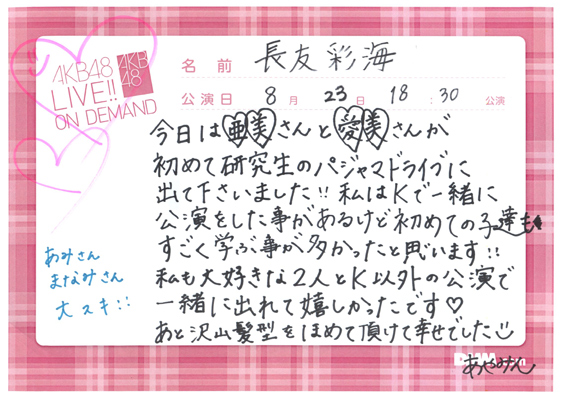 AKB48
LIVE!!
ON DEMAND
AKB
48
名前 長友彩海
公演日 8月 23日 18:30 公演
今日は亜美さんと愛美さんが
初めて研究生のパジャマドライブに
出て下さいました!! 私はKで一緒に
公演をした事があるけど初めての子達も
すごく学ぶ事が多かったと思います!!
私も大好きな2人とK以外の公演で
一緒に出れて嬉しかったです♡
あと沢山髪型をほめて頂けて幸せでした
あみさん
まなみさん
大スキ!!
あやみん